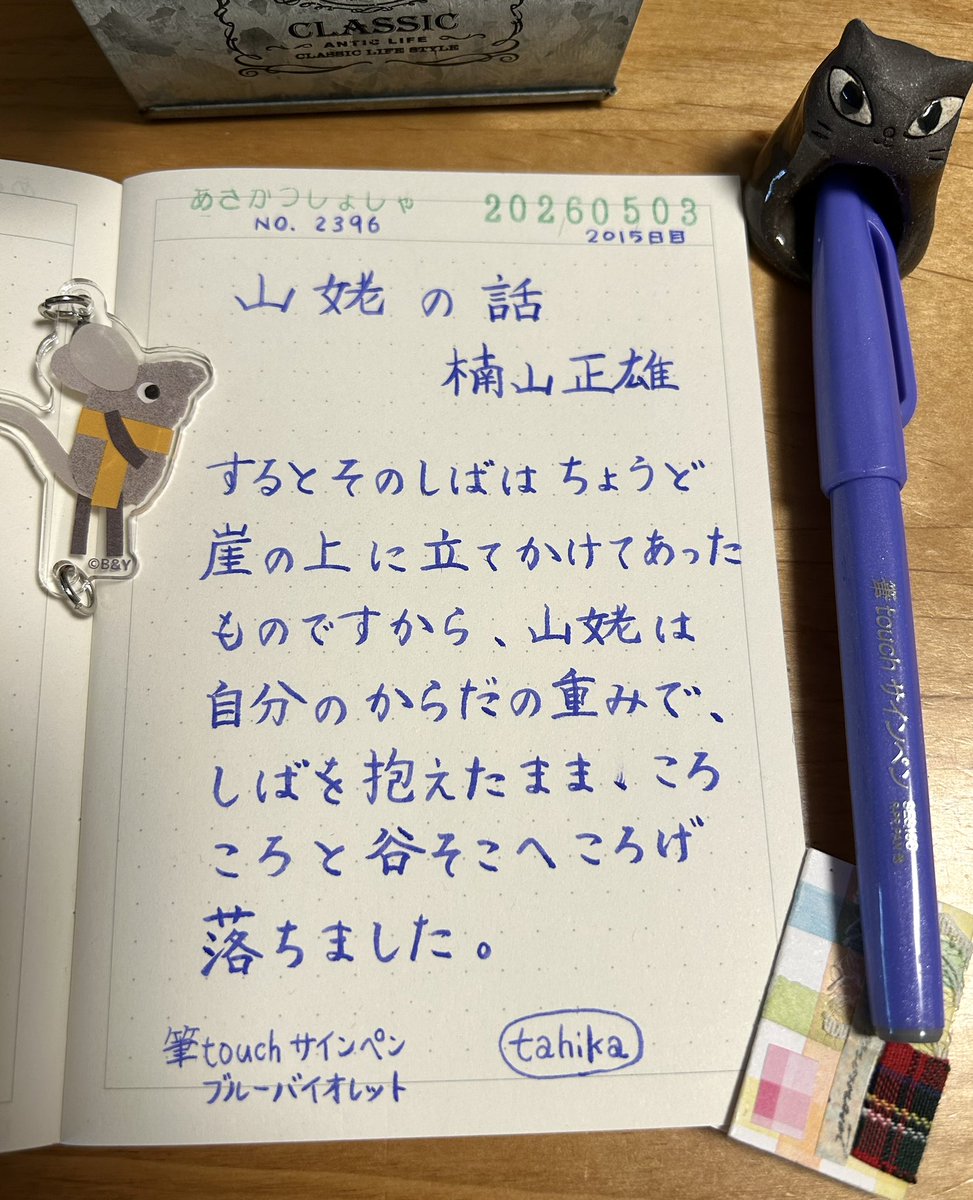 CLASSIC
ANTIC LIFE
CLASSIC LIFE STYLE
あさかつしょしゃ
20260503
NO. 2396
2015日目
山姥の話
楠山正雄
するとそのしばはちょうど
崖の上に立てかけてあった
ものですから、山姥は
自分のからだの重みで、
しばを抱えたまま、ころ
ころと谷そこへころげ
落ちました。
筆touchサインペン
ブルーバイオレット
tahika
©B&Y
筆touchサインペン